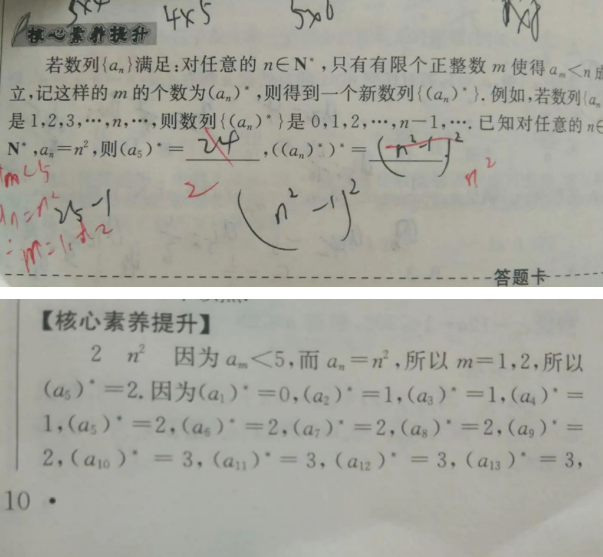 5×4 4×5 5×6
核心素养提升
若数列{aₙ}满足:对任意的 n∈N*,只有有限个正整数 m 使得 aₘ<n 成
立,记这样的 m 的个数为(aₙ)*,则得到一个新数列{(aₙ)*}.例如,若数列{aₙ
是 1,2,3,⋯,n,⋯,则数列{(aₙ)*}是 0,1,2,⋯,n−1,⋯.已知对任意的 n∈
N*,aₙ=n²,则(a₅)*= 24 ,((aₙ)*)*= (n²−1)²
m<5 2 n²
aₙ=n² 25−1 (n²−1)²
∴m=1,或2
答题卡
【核心素养提升】
2 n² 因为 aₘ<5,而 aₙ=n²,所以 m=1,2,所以
(a₅)*=2.因为(a₁)*=0,(a₂)*=1,(a₃)*=1,(a₄)*=
1,(a₅)*=2,(a₆)*=2,(a₇)*=2,(a₈)*=2,(a₉)*=
2,(a₁₀)*=3,(a₁₁)*=3,(a₁₂)*=3,(a₁₃)*=3,
10 •